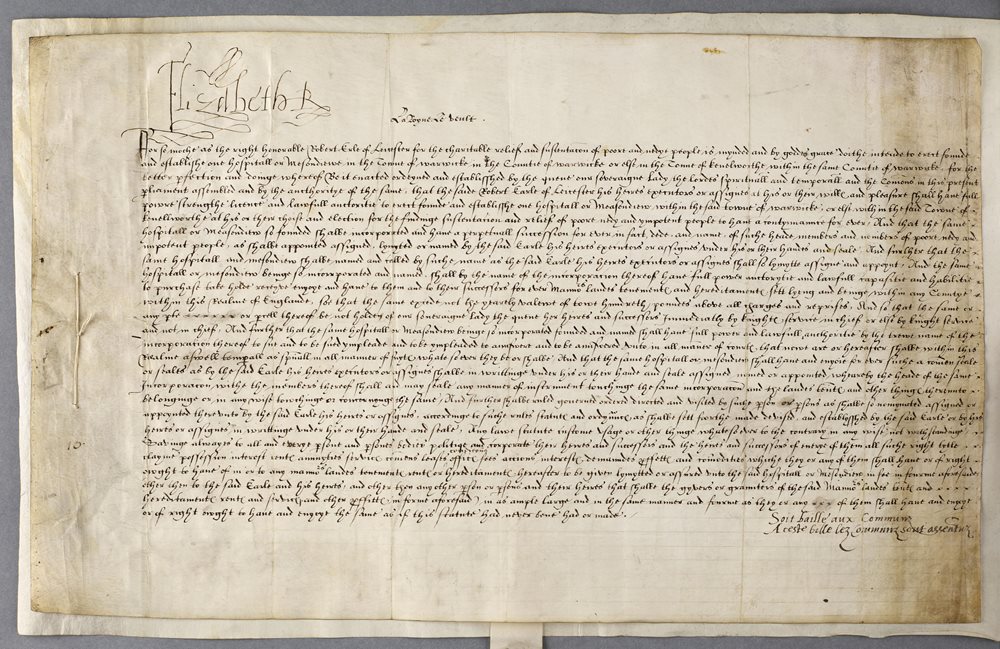 Elizabeth R
La Royne Le veult
For so moche as the right honorable Robert Erle of Leicester for the charitable relief and sustentacon of poore and nedye people is mynded and by goddes grace dothe intende to erect founde
and establishe one hospitall or Mesondiewe in the Towne of warwicke in the Countie of warwicke or else in the Towne of kenelworthe within the same Countie of warwicke. for the
better and doinge whereof Be it enacted ordeyned and establisshed by the quene our soveraigne Lady the lordes spirituall and temporall and the Comons in this present
parliament assembled and by the aucthoritye of the same. That the saide Robert Earle of Leicester his heires executors or assignes at his or their will and pleasure shall have full
power strenght licence and lawfull auctoritie to erect founde and establisshe one hospitall or Measondiew within the said towne of warwicke or else within the said Towne of
kenellworthe at his or there choise and election for the findinge sustentacion and relief of poore nedy and ympotent people to have a contynuance for ever. And that the same
hospitall or Mesondiew so founded shalbe incorporated and have a perpetuall succession for ever in fact dede and name. of suche heade members and nombers of poore nedy and
impotent people, as shalbe appointed assigned lymyted or named by the said Earle his heires executors or assignes under his or their handes and seale. And further that the
same hospitall and mesondiew shalbe named and called by suche name as the said Earle his heires executors or assignes shall so lymytte assigne and appoynt. And the same
hospitall or mesondiew beinge so incorporated and named, shall by the name of the incorporation thereof have full power auctorytie and lawfull capasitie and habilitie
to purchase take holde receyve enjoye and have to them and to their Successors for ever Mannors landes tenementes and hereditamentes sett lyeng and beinge within any Countye
within this Realme of Englande, so that the same excede not the yearly valewe of towe hundreth poundes above all charges and reprises. And so that the same or
any or parcell thereof be not holden of our soveraigne lady the quene her heires and successors Immediatly by knightes service in chief or else by knight service
and not in chief. And further that the same hospitall or Measondiew beinge so incorporated founded and named shall have full power and lawfull aucthoritie by the trewe name of the
incorporation thereof to sue and to be sued ympleade and to be ympleaded to answere and to be answered unto in all maner of courtes that nowe are or hereafter shalbe within this
Realme aswell temporall as spirituall in all manner of suytes whatsoever they be or shalbe. And that the same hospitall or misondiew shall have and enjoie for ever suche a comen seale
or seales as by the said Earle his heires executors or assignes shalbe in writtinge under his or their hand and seale assigned named or appointed whereby the heade of the same
Incorporacon withe the members thereof shall and may seale any maner of instrument touchinge the same incorporacon and the landes tenementes and other thinges thereunto
belonginge or in any wise touchinge or concernynge the same. And further shalbe ruled governed ordered directed and visited by suche person or persons as shalbe so nominated assigned or
appointed thereunto by the said Earle his heires or assignes. accordinge to suche rules statutes and ordynances as shalbe sett foorthe made devised and establisshed by the said Earle or by his
heires or assignes in writtinge under his or their hande and seale. Any lawe statute custome usage or other thinge whatsoever to the contrary in any wise not withstandinge
Savinge always to all and everye person and persons bodies politique and corporate their heires and successors and the heires and successors of everye of them all suche right tytle
clayme possession interest rentes annuyties service comens leases offices fees actions interestes demaundes proffittes and comodities whiche they or any of them shall have or of right
owght to have of in or to any mannors landes tenementes rentes or hereditamentes hereafter to be given lymytted or assured unto the said hospitall or Mesondiew in fourme aforesaide
other then to the said Earle and his heires and other then any other person or persons and their heires that shalbe the gyvers or graunters of the said Mannors landes tenementes and
hereditamentes rentes and services and other proffittes in forme aforesaid, in as ample large and in the same manner and fourme as they or any of them shall have and enjoye
or of right owght to have and enjoye the same as if this statute had never bene had or made.
Soit baille aux Communs
A ceste bille lez Communz sont assentuz
10